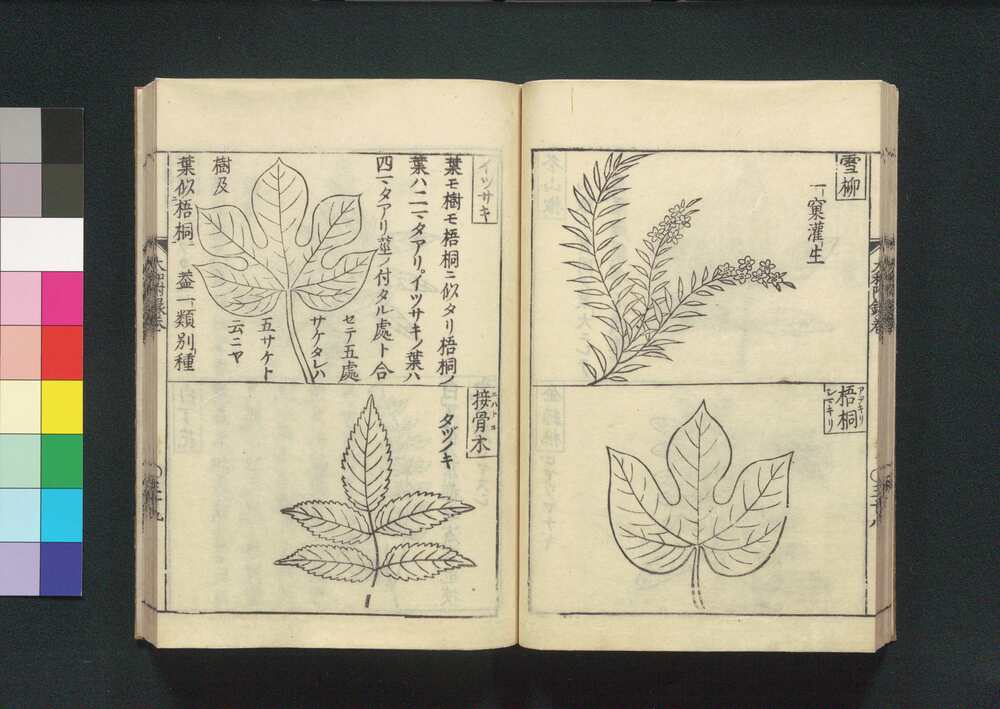 雪柳
一窠灌生
梧桐
アヲキリ
イツサキ
葉モ樹モ梧桐ニ似タリ梧桐ノ
葉ハ二一タアリイツサキノ葉ハ
四一タアリ莖ノ付タル處ト合
セテ五處
サケタレハ
五サケト
云ニヤ
樹及
葉似梧桐
蓋一類別種
接骨木
ニハトコ
タヅノキ